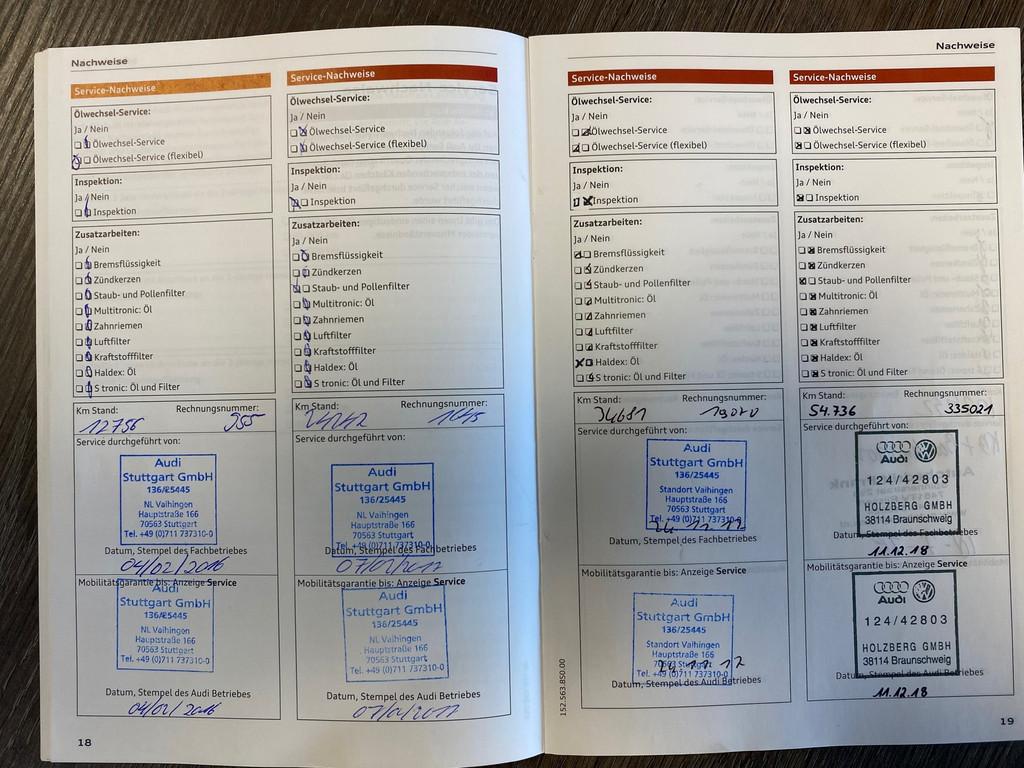 Nachweise
Service-Nachweise
Ölwechsel-Service:
Ja / Nein
Ölwechsel-Service
Ölwechsel-Service (flexibel)
Inspektion:
Ja / Nein
Inspektion
Zusatzarbeiten:
Ja / Nein
Bremsflüssigkeit
Zündkerzen
Staub- und Pollenfilter
Multitronic: Öl
Zahnriemen
Luftfilter
Kraftstofffilter
Haldex: Öl
S tronic: Öl und Filter
Km Stand: Rechnungsnummer:
12756 955
Service durchgeführt von:
Audi
Stuttgart GmbH
136/25445
NL Vaihingen
Hauptstraße 166
70563 Stuttgart
Tel. +49 (0)711 737310-0
Datum, Stempel des Fachbetriebes
04/02/2016
Mobilitätsgarantie bis: Anzeige Service
Audi
Stuttgart GmbH
136/25445
NL Vaihingen
Hauptstraße 166
70563 Stuttgart
Tel. +49 (0)711 737310-0
Datum, Stempel des Audi Betriebes
04/02/2016
18
Service-Nachweise
Ölwechsel-Service:
Ja / Nein
Ölwechsel-Service
Ölwechsel-Service (flexibel)
Inspektion:
Ja / Nein
Inspektion
Zusatzarbeiten:
Ja / Nein
Bremsflüssigkeit
Zündkerzen
Staub- und Pollenfilter
Multitronic: Öl
Zahnriemen
Luftfilter
Kraftstofffilter
Haldex: Öl
S tronic: Öl und Filter
Km Stand: Rechnungsnummer:
Service durchgeführt von:
Audi
Stuttgart GmbH
136/25445
NL Vaihingen
Hauptstraße 166
70563 Stuttgart
Tel. +49 (0)711 737310-0
Datum, Stempel des Fachbetriebes
Mobilitätsgarantie bis: Anzeige Service
Audi
Stuttgart GmbH
136/25445
NL Vaihingen
Hauptstraße 166
70563 Stuttgart
Tel. +49 (0)711 737310-0
Datum, Stempel des Audi Betriebes
Nachweise
Service-Nachweise
Ölwechsel-Service:
Ja / Nein
Ölwechsel-Service
Ölwechsel-Service (flexibel)
Inspektion:
Ja / Nein
Inspektion
Zusatzarbeiten:
Ja / Nein
Bremsflüssigkeit
Zündkerzen
Staub- und Pollenfilter
Multitronic: Öl
Zahnriemen
Luftfilter
Kraftstofffilter
Haldex: Öl
S tronic: Öl und Filter
Km Stand: Rechnungsnummer:
34681
Service durchgeführt von:
Audi
Stuttgart GmbH
136/25445
Standort Vaihingen
Hauptstraße 166
70563 Stuttgart
Tel. +49 (0)711 737310-0
24.11.17
Datum, Stempel des Fachbetriebes
Mobilitätsgarantie bis: Anzeige Service
Audi
Stuttgart GmbH
136/25445
Standort Vaihingen
Hauptstraße 166
70563 Stuttgart
24.11.17
Tel. +49 (0)711 737310-0
Datum, Stempel des Audi Betriebes
152.563.850.00
Service-Nachweise
Ölwechsel-Service:
Ja / Nein
Ölwechsel-Service
Ölwechsel-Service (flexibel)
Inspektion:
Ja / Nein
Inspektion
Zusatzarbeiten:
Ja / Nein
Bremsflüssigkeit
Zündkerzen
Staub- und Pollenfilter
Multitronic: Öl
Zahnriemen
Luftfilter
Kraftstofffilter
Haldex: Öl
S tronic: Öl und Filter
Km Stand: Rechnungsnummer:
54.736 335021
Service durchgeführt von:
Audi
124/42803
HOLZBERG GMBH
38114 Braunschweig
Datum, Stempel des Fachbetriebes
11.12.18
Mobilitätsgarantie bis: Anzeige Service
Audi
124/42803
HOLZBERG GMBH
38114 Braunschweig
Datum, Stempel des Audi Betriebes
11.12.18
19